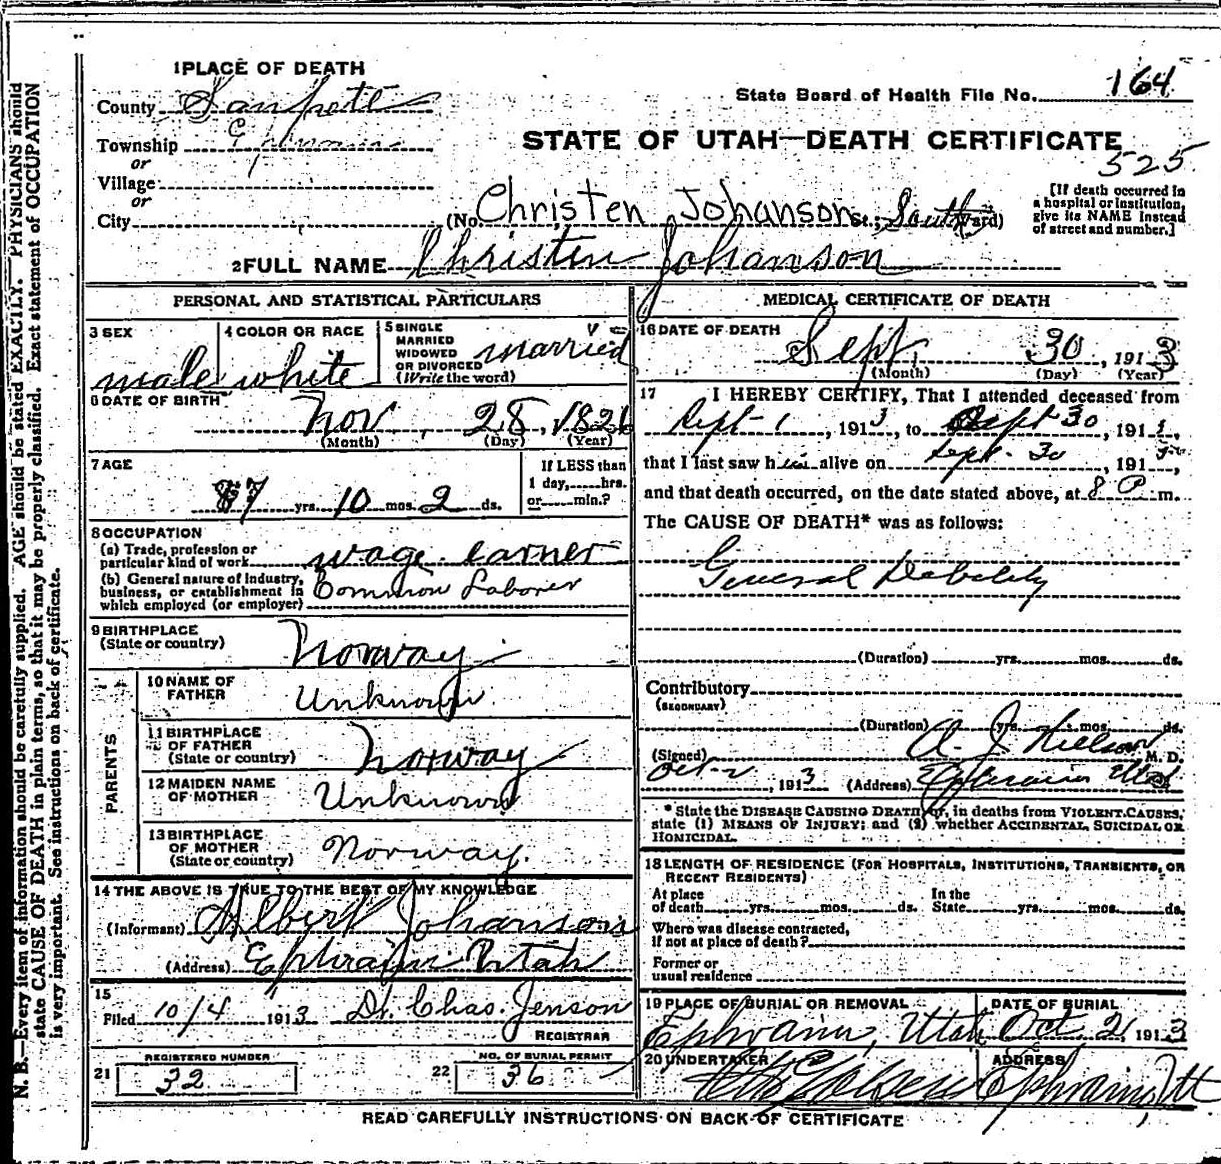 1 PLACE OF DEATH
County Sanpete
State Board of Health File No. 164
Township Ephraim
STATE OF UTAH—DEATH CERTIFICATE
525
or
Village
or
City
(No. Christen Johanson St.; South Ward)
[If death occurred in
a hospital or institution,
give its NAME instead
of street and number.]
2 FULL NAME Christen Johanson
PERSONAL AND STATISTICAL PARTICULARS
3 SEX
male
4 COLOR OR RACE
white
5 SINGLE
MARRIED
WIDOWED
OR DIVORCED
(Write the word)
married
6 DATE OF BIRTH
Nov. 28, 1826
(Month) (Day) (Year)
7 AGE
87 yrs. 10 mos. 2 ds.
If LESS than
1 day, hrs.
or min.?
8 OCCUPATION
(a) Trade, profession or
particular kind of work wage earner
(b) General nature of industry,
business, or establishment in
which employed (or employer) Common Laborer
9 BIRTHPLACE
(State or country) Norway
PARENTS
10 NAME OF
FATHER Unknown
11 BIRTHPLACE
OF FATHER
(State or country) Norway
12 MAIDEN NAME
OF MOTHER Unknown
13 BIRTHPLACE
OF MOTHER
(State or country) Norway.
14 THE ABOVE IS TRUE TO THE BEST OF MY KNOWLEDGE
(Informant) Albert Johanson
(Address) Ephraim Utah
15
Filed 10/4 1913 Dr. Chas. Jenson
REGISTRAR
21 REGISTERED NUMBER
32
22 NO. OF BURIAL PERMIT
36
MEDICAL CERTIFICATE OF DEATH
16 DATE OF DEATH
Sept. 30, 1913
(Month) (Day) (Year)
17 I HEREBY CERTIFY, That I attended deceased from
Sept-1, 1913, to Sept 30, 191
that I last saw him alive on Sept. 30, 191
and that death occurred, on the date stated above, at 8 P m.
The CAUSE OF DEATH* was as follows:
General Debility
(Duration) yrs. mos. ds.
Contributory
(SECONDARY)
(Duration) yrs. mos. ds.
(Signed) A. J. Nielson M. D.
Oct-2, 1913 (Address) Ephraim Utah
* State the DISEASE CAUSING DEATH or, in deaths from VIOLENT CAUSES,
state (1) MEANS OF INJURY; and (2) whether ACCIDENTAL, SUICIDAL OR
HOMICIDAL.
18 LENGTH OF RESIDENCE (FOR HOSPITALS, INSTITUTIONS, TRANSIENTS, OR
RECENT RESIDENTS)
At place
of death yrs. mos. ds.
In the
State yrs. mos. ds.
Where was disease contracted,
if not at place of death?
Former or
usual residence
19 PLACE OF BURIAL OR REMOVAL
Ephraim, Utah
DATE OF BURIAL
Oct 2, 1913
20 UNDERTAKER
ADDRESS
Ephraim, Ut
READ CAREFULLY INSTRUCTIONS ON BACK OF CERTIFICATE
N. B.—Every item of information should be carefully supplied. AGE should be stated EXACTLY. PHYSICIANS should
state CAUSE OF DEATH in plain terms, so that it may be properly classified. Exact statement of OCCUPATION
is very important. See instructions on back of certificate.